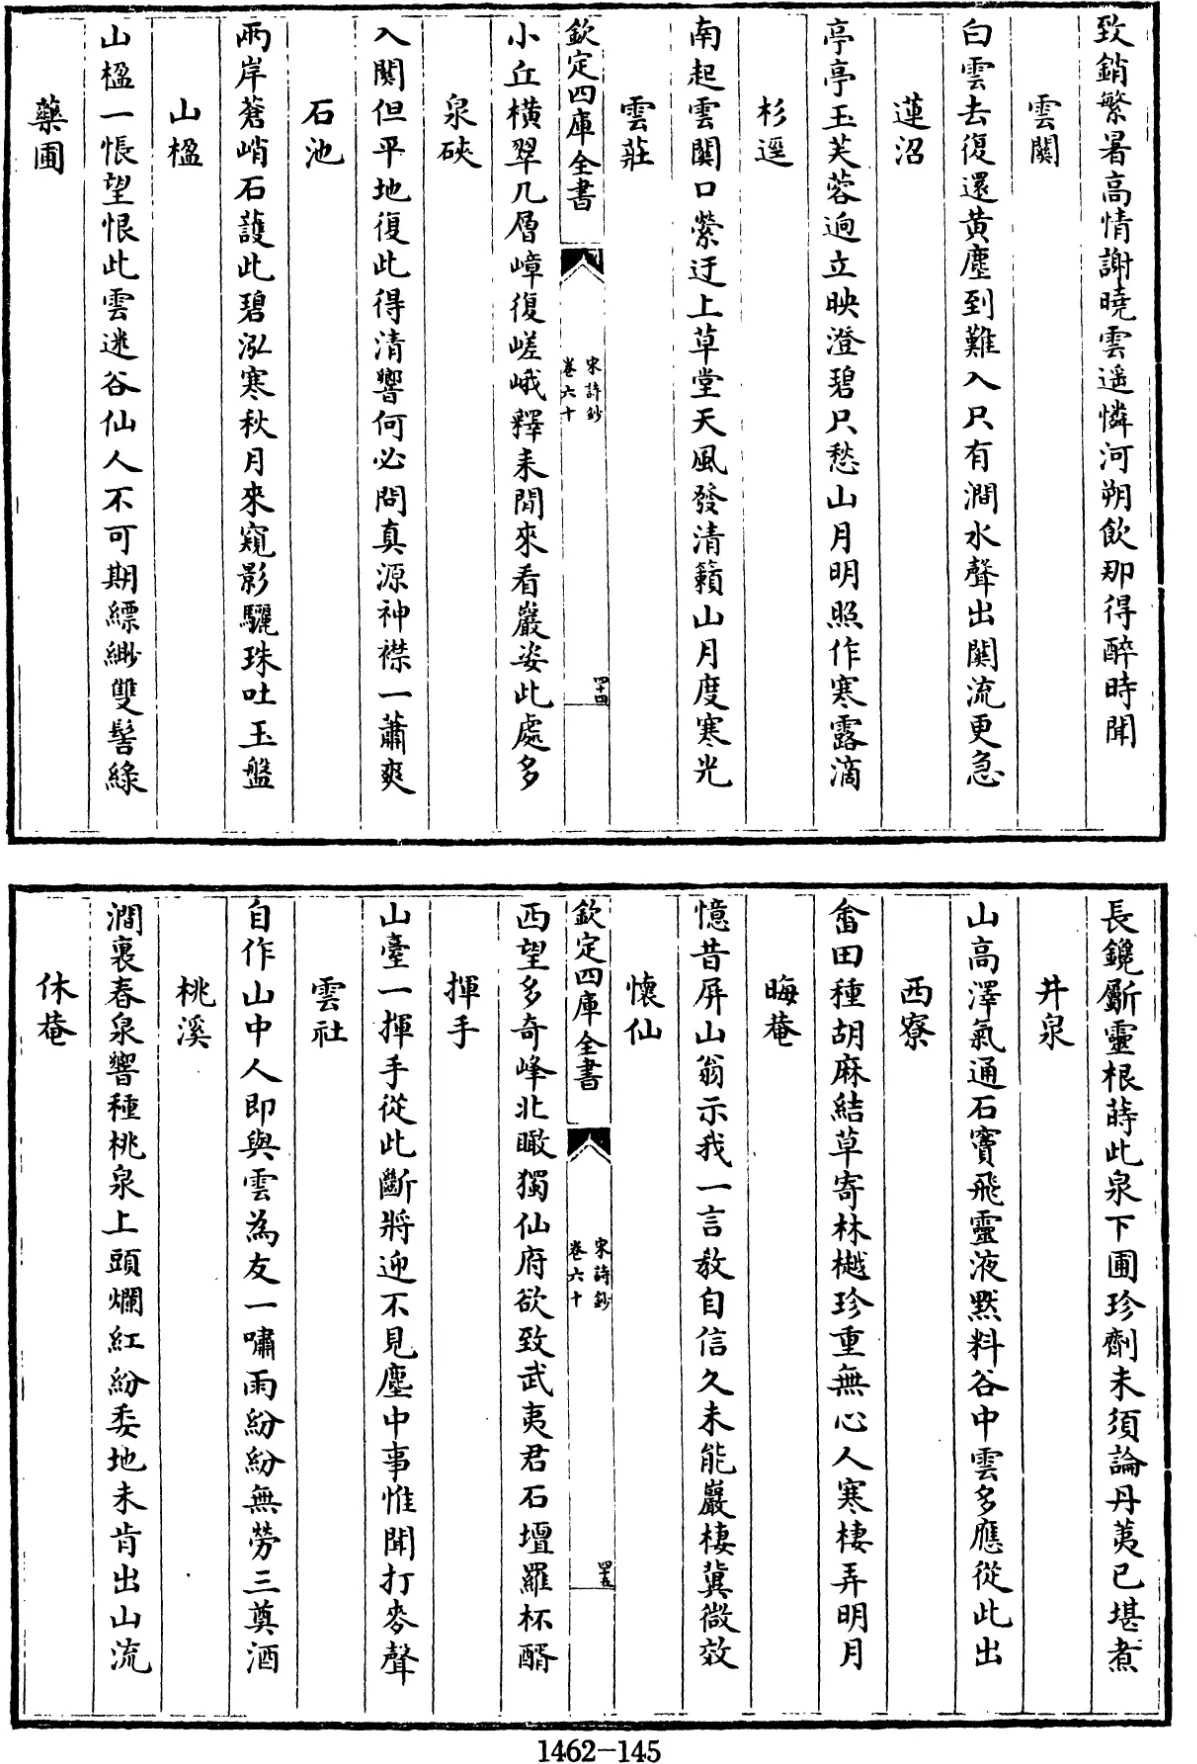 致銷繁暑高情謝曉雲遥憐河朔飲那得醉時聞
雲關
白雲去復還黄塵到難入只有澗水聲出關流更急
蓮沼
亭亭玉芙蓉逈立映澄碧只愁山月明照作寒露滴
杉逕
南起雲關口縈迂上草堂天風發清籟山月度寒光
雲莊
欽定四庫全書
宋詩鈔
卷六十
四十四
小丘横翠几層嶂復嵯峨釋耒閒來看巖姿此處多
泉硤
入關但平地復此得清響何必問真源神襟一蕭爽
石池
兩岸蒼峭石護此碧泓寒秋月來窺影驪珠吐玉盤
山楹
山楹一悵望恨此雲迷谷仙人不可期縹緲雙髻緑
藥圃
長鑱斸靈根蒔此泉下圃珍劑未須論丹荑已堪煮
井泉
山高澤氣通石竇飛靈液默料谷中雲多應從此出
西寮
畬田種胡麻結草寄林樾珍重無心人寒棲弄明月
晦菴
憶昔屏山翁示我一言教自信久未能巖棲冀微效
懷仙
欽定四庫全書
宋詩鈔
卷六十
四十五
西望多奇峰北瞰獨仙府欲致武夷君石壇羅杯醑
揮手
山臺一揮手從此斷將迎不見塵中事惟聞打麥聲
雲社
自作山中人即與雲為友一嘯雨紛紛無勞三奠酒
桃溪
澗裏春泉響種桃泉上頭爛紅紛委地未肯出山流
休菴
1462-145